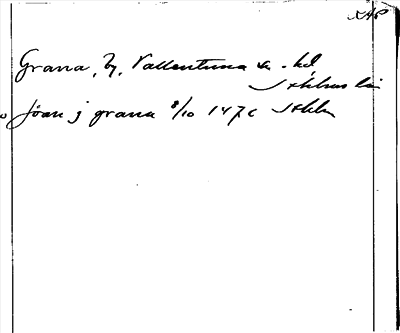 Grana, by, Vallentuna sn o. hd
Sthlms län
Joan j grana 8/10 147c Sthlm